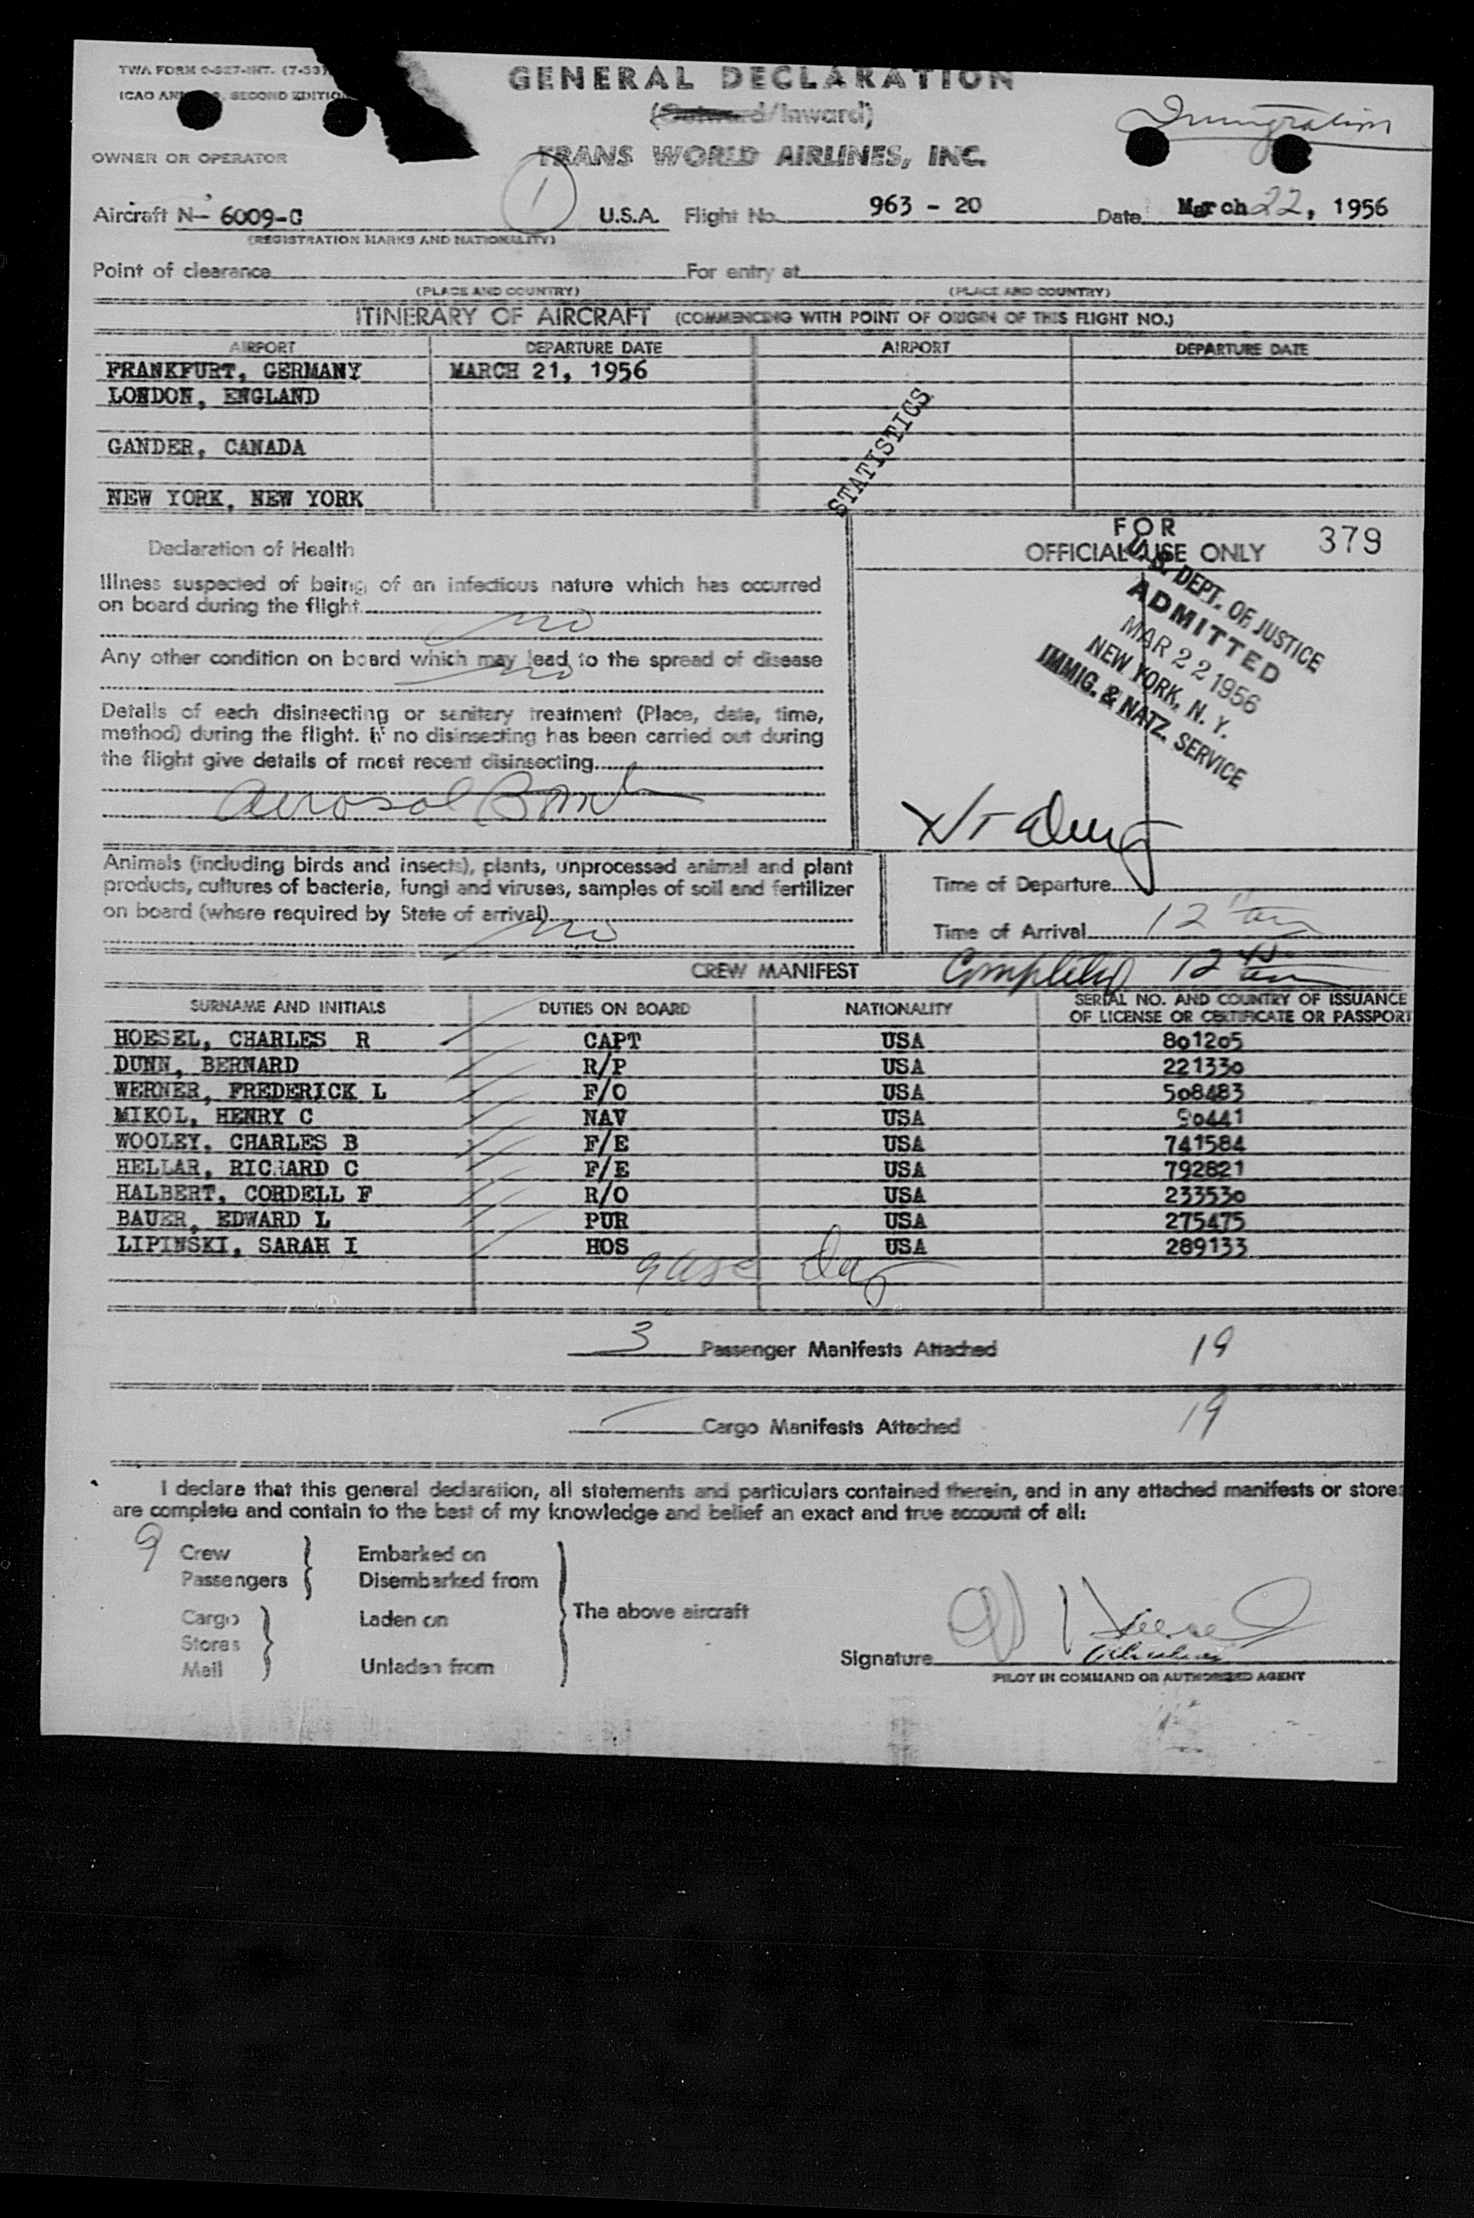 TWA FORM
ICAO SECOND EDITION
GENERAL DECLARATION
(Outward/Inward)
Immigration
OWNER OR OPERATOR
TRANS WORLD AIRLINES, INC.
1
Aircraft N- 6009-C U.S.A. Flight No. 963 - 20 Date March 22, 1956
(REGISTRATION MARKS AND NATIONALITY)
Point of clearance For entry at
(PLACE AND COUNTRY) (PLACE AND COUNTRY)
ITINERARY OF AIRCRAFT (COMMENCING WITH POINT OF ORIGIN OF THIS FLIGHT NO.)
AIRPORT DEPARTURE DATE AIRPORT DEPARTURE DATE
FRANKFURT, GERMANY MARCH 21, 1956
LONDON, ENGLAND
GANDER, CANADA
NEW YORK, NEW YORK
STATISTICS
Declaration of Health
Illness suspected of being of an infectious nature which has occurred
on board during the flight no
Any other condition on board which may lead to the spread of disease
no
Details of each disinsecting or sanitary treatment (Place, date, time,
method) during the flight. If no disinsecting has been carried out during
the flight give details of most recent disinsecting
Aerosol Bomb
FOR
OFFICIAL USE ONLY 379
U.S. DEPT. OF JUSTICE
ADMITTED
MAR 22 1956
NEW YORK, N. Y.
IMMIG. & NATZ. SERVICE
Animals (including birds and insects), plants, unprocessed animal and plant
products, cultures of bacteria, fungi and viruses, samples of soil and fertilizer
on board (where required by State of arrival)
no
Time of Departure
Time of Arrival 12
CREW MANIFEST Completed 12
SURNAME AND INITIALS DUTIES ON BOARD NATIONALITY SERIAL NO. AND COUNTRY OF ISSUANCE
OF LICENSE OR CERTIFICATE OR PASSPORT
HOESEL, CHARLES R CAPT USA 801205
DUNN, BERNARD R/P USA 221330
WERNER, FREDERICK L F/O USA 508483
MIKOL, HENRY C NAV USA 90441
WOOLEY, CHARLES B F/E USA 741584
HELLAR, RICHARD C F/E USA 792821
HALBERT, CORDELL F R/O USA 233530
BAUER, EDWARD L PUR USA 275475
LIPINSKI, SARAH I HOS USA 289133
3 Passenger Manifests Attached 19
Cargo Manifests Attached 19
I declare that this general declaration, all statements and particulars contained therein, and in any attached manifests or stores
are complete and contain to the best of my knowledge and belief an exact and true account of all:
9 Crew Embarked on
Passengers Disembarked from
Cargo Laden on The above aircraft
Stores
Mail Unladen from
Signature
PILOT IN COMMAND OR AUTHORIZED AGENT